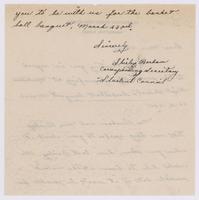 you to be with us for the basket
ball banquet, March 23rd.
Sincerely,
Shirley
Corresponding Secretary
Student Council